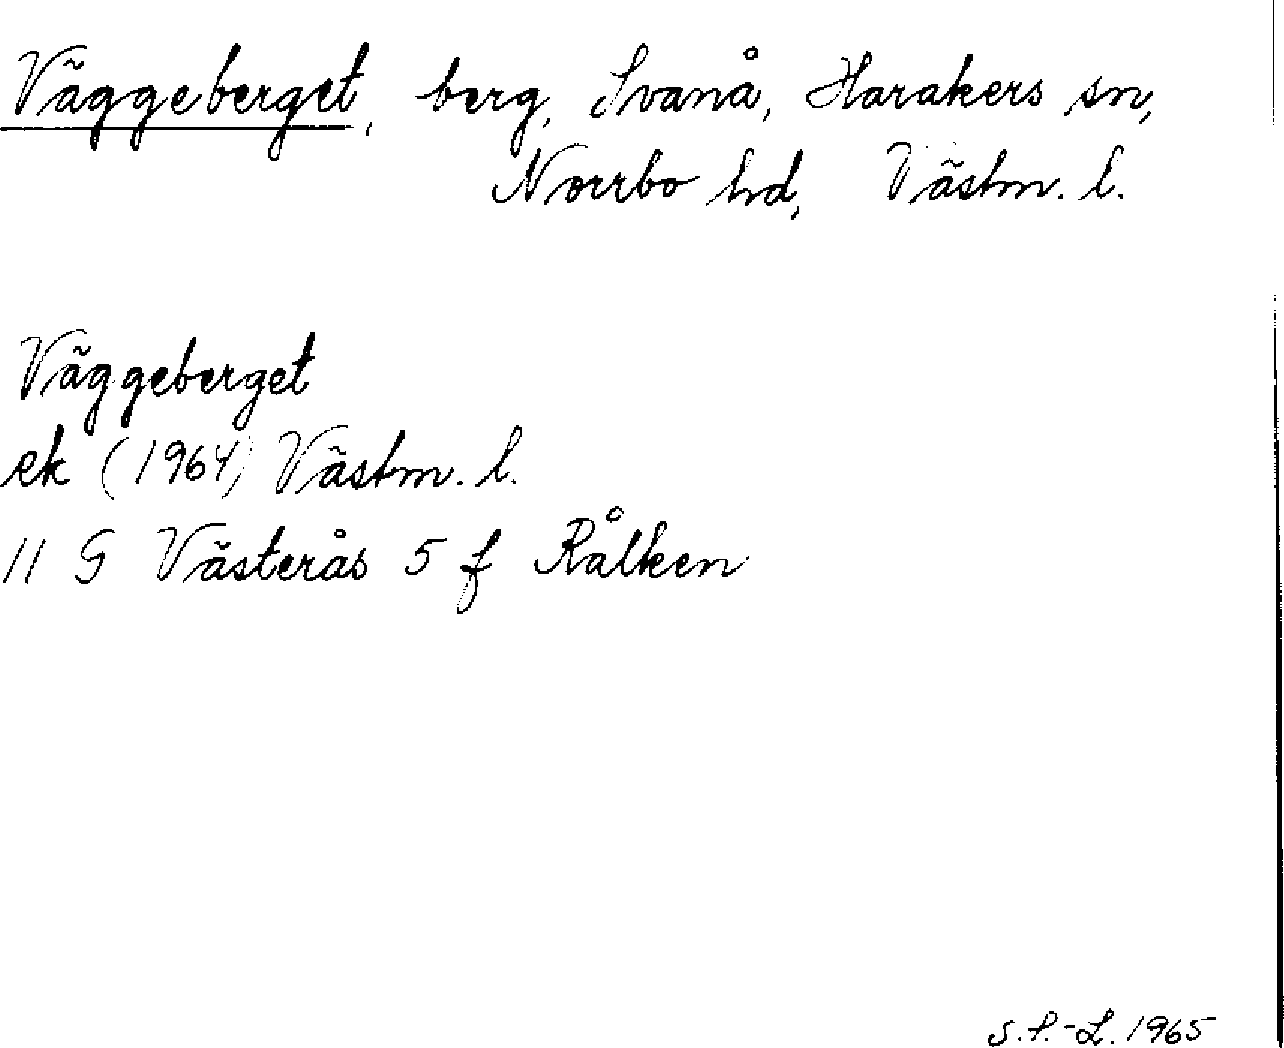 Väggeberget, berg, Svanå, Harakers sn,
Norrbo hd, Västm. l.
Väggeberget
ek (1964) Västm. l.
11 G Västerås 5 f Rålken
S.P.-L. 1965